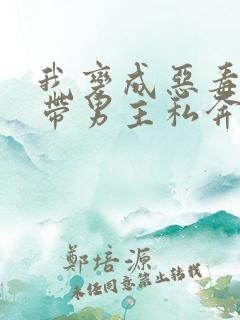 我变成恶毒
带男主私奔
鄭培源
未经同意禁止转载